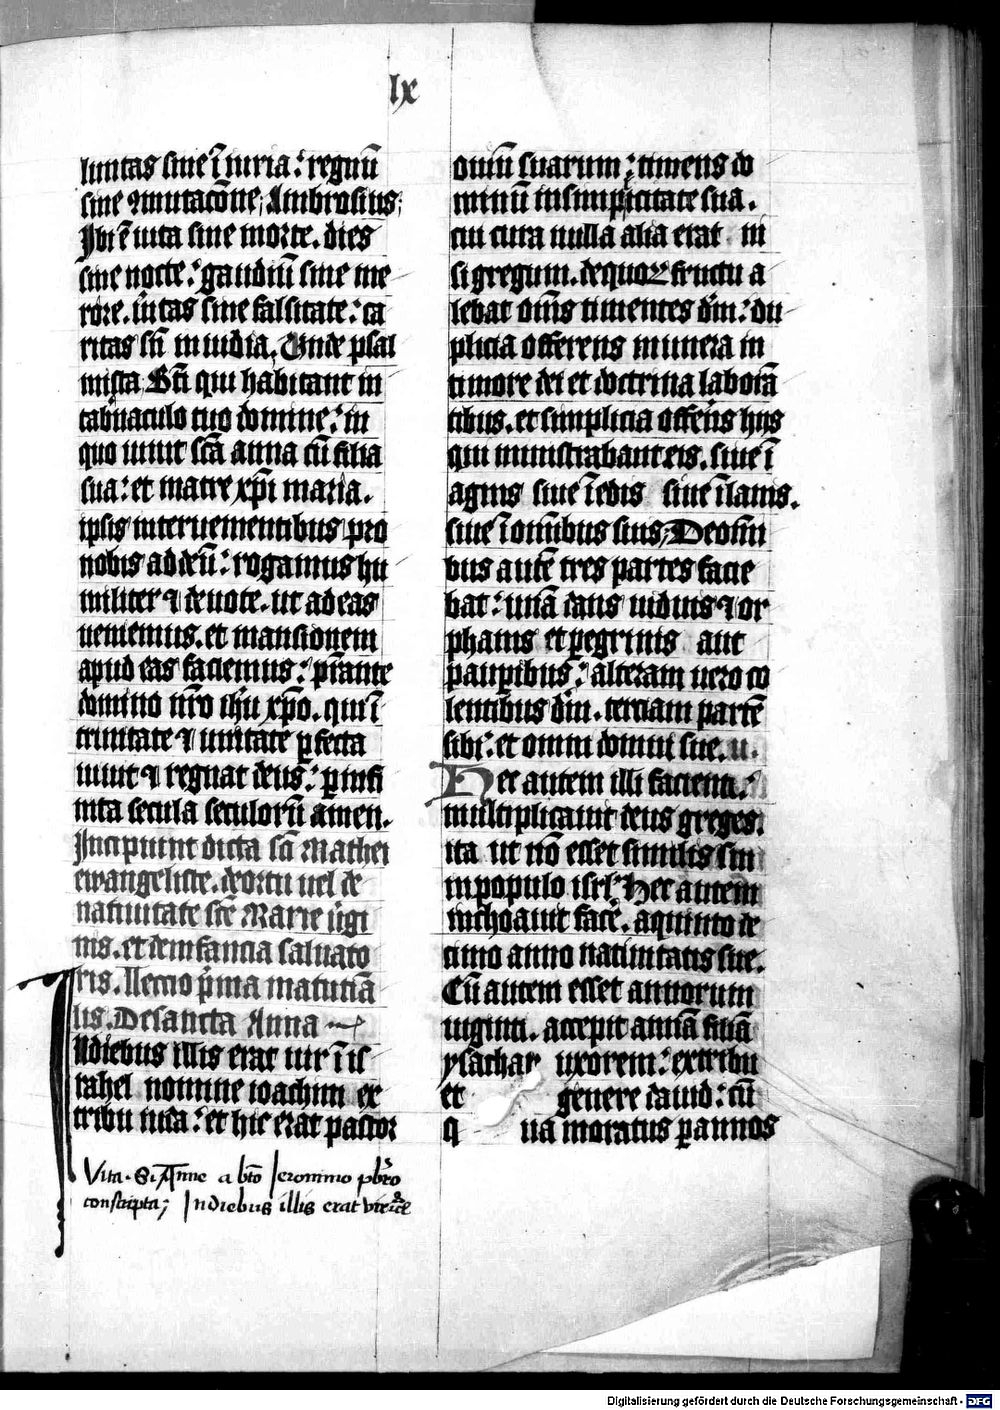 lx
luntas sine ī iuria: regnū
sine ꝯmutacōne; Ambrosius;
Ibi ē uita sine morte. dies
sine nocte: gaudiū sine me
rore. ūitas sine falsitate: ca
ritas sñ inuidia. Unde psal
mista Sci qui habitant in
tabnaculo tuo domine: in
quo uiuit scā anna cū filia
sua: et matre xp̄i maria.
ipsis interuenientibus pro
nobis ad deū: rogamus hu
militer ⁊ deuote. ut ad eas
ueniemus. et mansionem
apud eas faciemus: p̄stante
domino nr̄o ihū xp̄o. qui ī
trinitate ⁊ unitate ꝑfecta
uiuit ⁊ regnat deus: ꝑ infi
nita secula seculorū amen.
Incipiunt dicta scī Mathei
ewangeliste. de ortu uel de
natiuitate scē Marie ūgi
nis. et de infancia saluato
ris. Leccio p̄ma matutiā
lis. De sancta Anna
In diebus illis erat uir ī is
rahel nomine ioachim ex
tribu iuda: et hic erat pastor
Vita. S. Anne a bto Ieronimo pbro
conscripta; In diebus illis erat vir ic
ouiū suarum; timens do
minū in simplicitate sua.
cui cura nulla alia erat in
si gregum. de quoꝝ fructu a
lebat om̄s timentes dm̄: du
plicia offerens munera in
timore dei et doctrina laborā
tibus. et simplicia offēns hijs
qui ministrabant eis. siue ī
agnis siue ī edis siue ī lanis.
siue ī om̄ibus suis; De om̄i
bus autē tres partes facie
bat: unā dans uiduis ⁊ or
phanis et pegrinis aut
paupibus; alteram uero co
lentibus dm̄. terciam partē
sibi: et omni domui sue.
Hec autem illi facienti:
multiplicauit deus greges:
ita ut nō esset similis sui
in populo isrl. Hec autem
inchoauit facē. a quinto de
cimo anno natiuitatis sue.
Cū autem esset annorum
uiginti. accepit annā filiā
ysachar uxorem: ex tribu
et genere dauid: cū
q ua moratus ꝑ annos
Digitalisierung gefördert durch die Deutsche Forschungsgemeinschaft - DFG